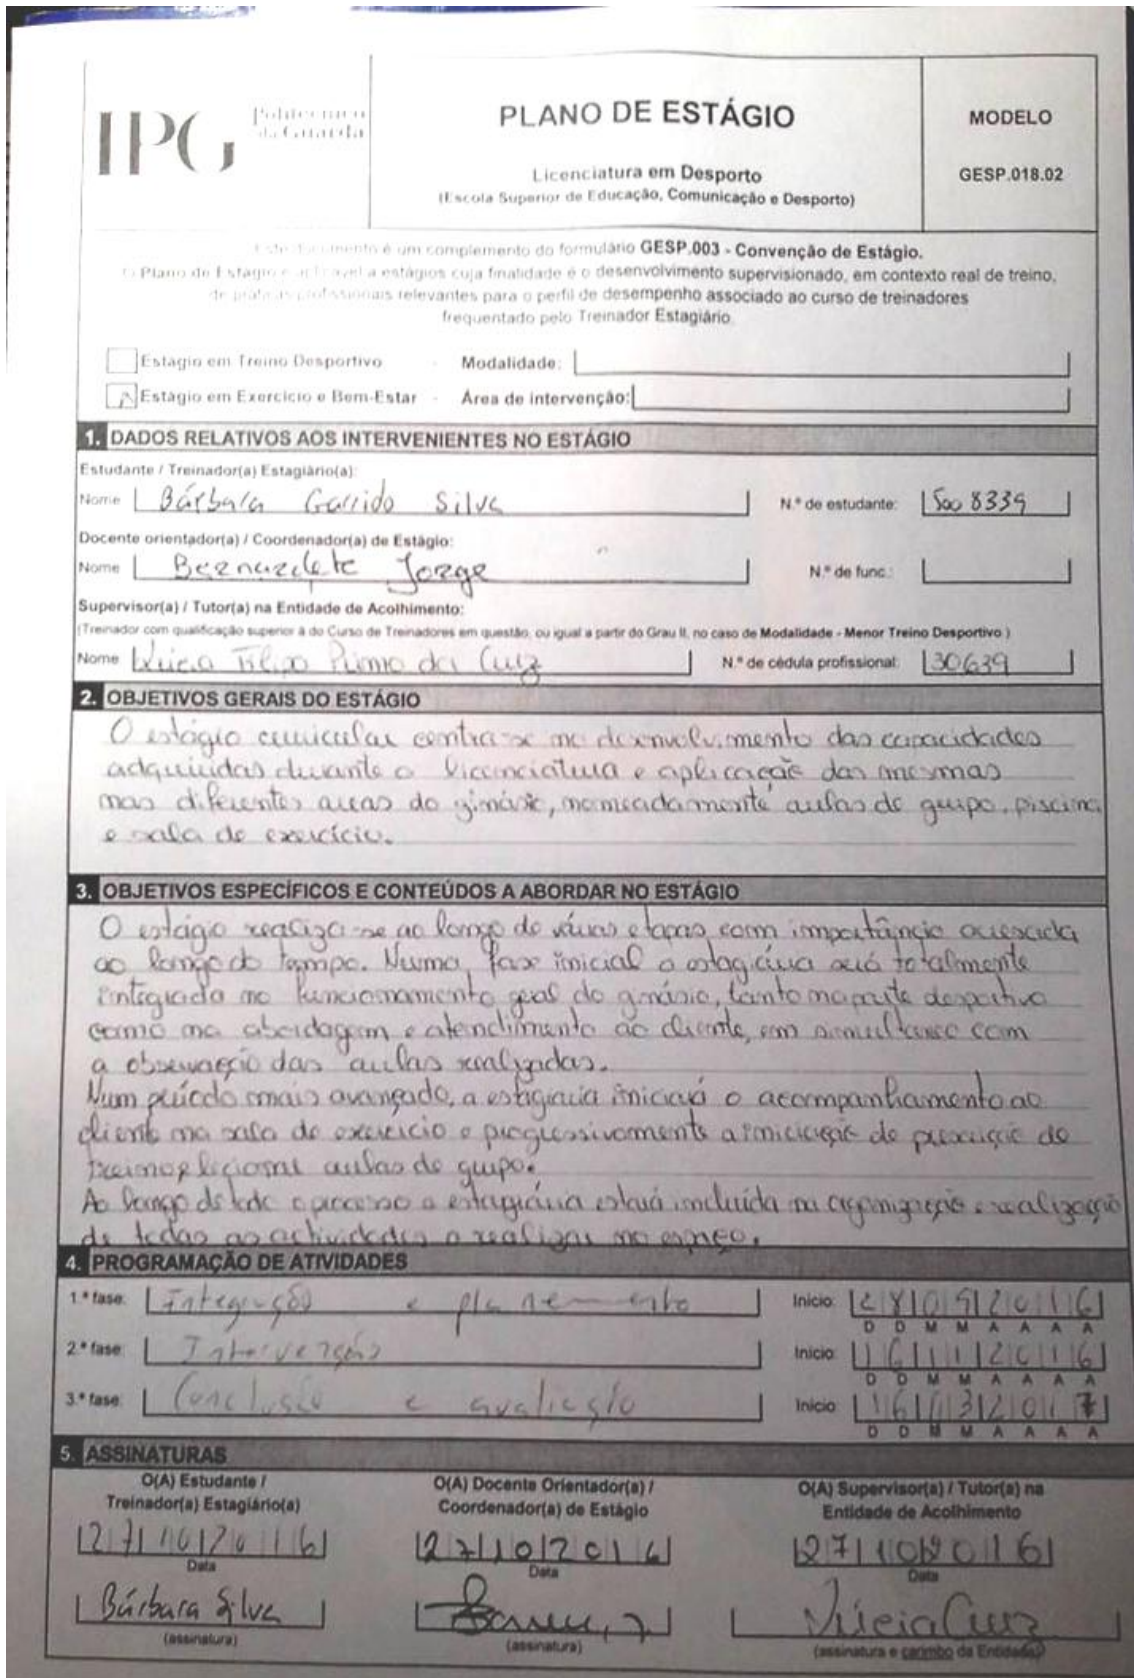 IPG
Politécnico
da Guarda
PLANO DE ESTÁGIO
Licenciatura em Desporto
(Escola Superior de Educação, Comunicação e Desporto)
MODELO
GESP.018.02
Este documento é um complemento do formulário GESP.003 - Convenção de Estágio.
O Plano de Estágio é aplicável a estágios cuja finalidade é o desenvolvimento supervisionado, em contexto real de treino,
de práticas profissionais relevantes para o perfil de desempenho associado ao curso de treinadores
frequentado pelo Treinador Estagiário.
Estágio em Treino Desportivo - Modalidade:
Estágio em Exercício e Bem-Estar - Área de intervenção:
1. DADOS RELATIVOS AOS INTERVENIENTES NO ESTÁGIO
Estudante / Treinador(a) Estagiário(a):
Nome Bárbara Garrido Silva N.º de estudante: 5008339
Docente orientador(a) / Coordenador(a) de Estágio:
Nome Bernardete Jorge N.º de func.:
Supervisor(a) / Tutor(a) na Entidade de Acolhimento:
(Treinador com qualificação superior à do Curso de Treinadores em questão, ou igual a partir do Grau II, no caso de Modalidade - Menor Treino Desportivo.)
Nome da Cruz N.º de cédula profissional: 30639
2. OBJETIVOS GERAIS DO ESTÁGIO
O estágio curricular centra-se no desenvolvimento das capacidades
adquiridas durante a licenciatura e aplicação das mesmas
nas diferentes areas do ginásio, nomeadamente aulas de grupo, piscina
e sala de exercício.
3. OBJETIVOS ESPECÍFICOS E CONTEÚDOS A ABORDAR NO ESTÁGIO
O estágio realiza-se ao longo de várias etapas com importância acrescida
ao longo do tempo. Numa fase inicial a estagiária será totalmente
integrada no funcionamento geral do ginásio, tanto na parte desportiva
como na abordagem e atendimento ao cliente, em simultaneo com
a observação das aulas realizadas.
Num período mais avançado, a estagiaria iniciará o acompanhamento ao
cliente na sala de exercicio e progressivamente a iniciação de prescrição de
treino aulas de grupo.
Ao longo de todo o processo a estagiária estará incluída na organização e realização
de todas as actividades a realizar no espaço.
4. PROGRAMAÇÃO DE ATIVIDADES
1.ª fase: Integração e planemento Início: 28092016
D D M M A A A A
2.ª fase: Intervenção Início: 16112016
D D M M A A A A
3.ª fase: Conclusão e avaliação Início: 2017
D D M M A A A A
5. ASSINATURAS
O(A) Estudante /
Treinador(a) Estagiário(a)
O(A) Docente Orientador(a) /
Coordenador(a) de Estágio
O(A) Supervisor(a) / Tutor(a) na
Entidade de Acolhimento
27102016
27102016
27102016
Data
Data
Data
Bárbara Silva
Cruz
(assinatura)
(assinatura)
(assinatura e carimbo da Entidade)